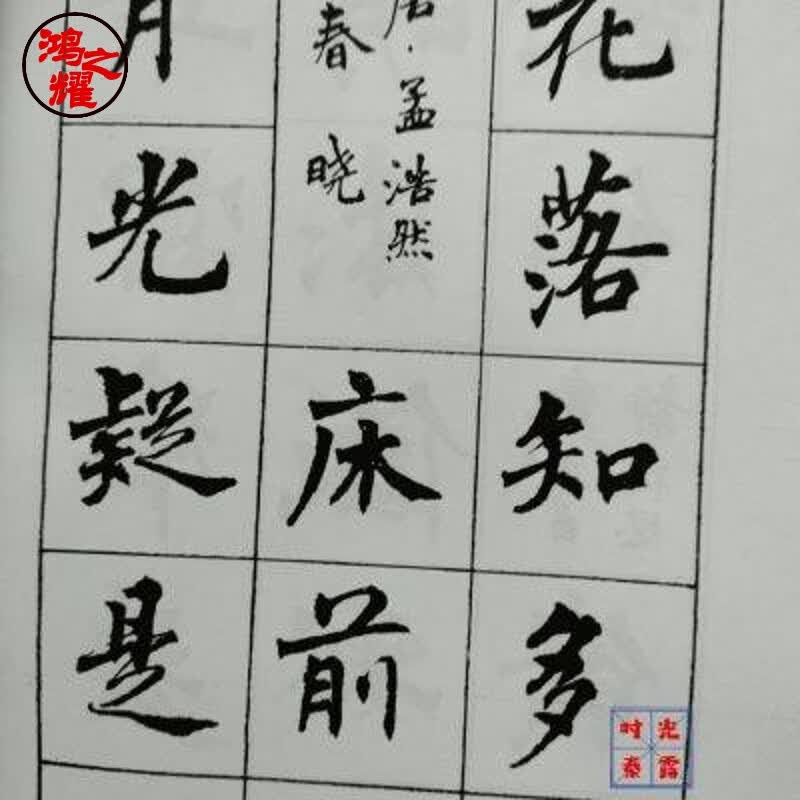 花落知多
唐·孟浩然
春晓
床前
月光疑是
鸿之耀
时光